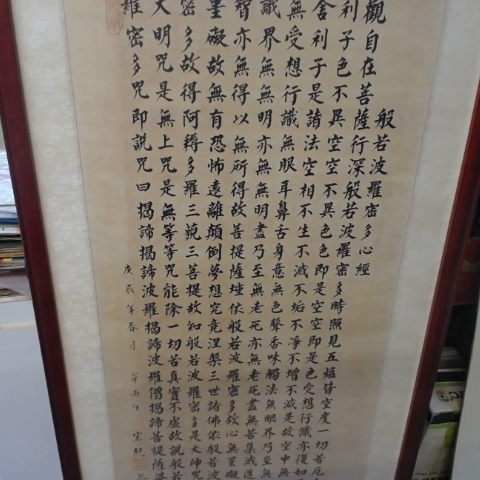 般若波羅密多心經
觀自在菩薩行深般若波羅密多時照見五蘊皆空度一切苦厄
利子色不異空空不異色色即是空空即是色受想行識亦復如
舍利子是諸法空相不生不滅不垢不淨不增不減是故空中無
無受想行識無眼耳鼻舌身意無色聲香味觸法無眼界乃至無
識界無無明亦無無明盡乃至無老死亦無老死盡無苦集滅道
智亦無得以無所得故菩提薩埵依般若波羅密多故心無罣礙
罣礙故無有恐怖遠離顛倒夢想究竟涅槃三世諸佛依般若波
密多故得阿耨多羅三藐三菩提故知般若波羅密多是大神咒
大明咒是無上咒是無等等咒能除一切苦真實不虛故說般若
羅密多咒即說咒曰揭諦揭諦波羅揭諦波羅僧揭諦菩提薩婆
庚辰年春月